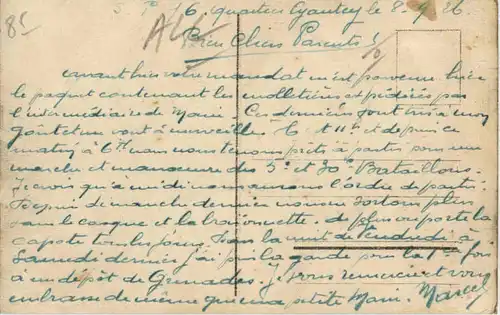 S. P. 76 Quartier Gyautey le 8-9-26
85
Bien Chers Parents!
avant hier votre mandat m'est parvenu hier
le paquet contenant les molletières expédiées par
l'intermédiaire de Marie. Ces dernières sont mis à mon
goût et me vont à merveille. Il est 11h et depuis ce
matin à 6h nous nous tenons prêts à partir pour une
marche et manoeuvre des 5e et 30e Bataillons.
Je crois qu'à midi nous aurons l'ordre de partir.
Depuis dimanche dernier nous ne sortons plus
sans le casque et la baïonnette. de plus on porte la
capote tous les jours. Dans la nuit de Vendredi à
Samedi dernier j'ai pris la garde pour la 1re fois
à un dépôt de Grenades. Je vous remercie et vous
embrasse de même que ma petite Marie. Marcel